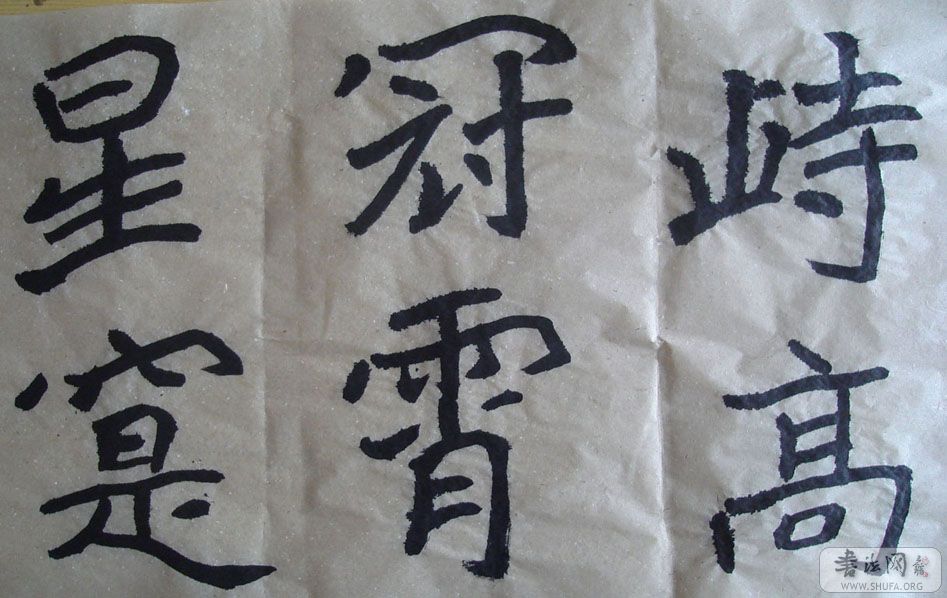 峙高
冠霄
星寔
书法网
WWW.SHUFA.ORG